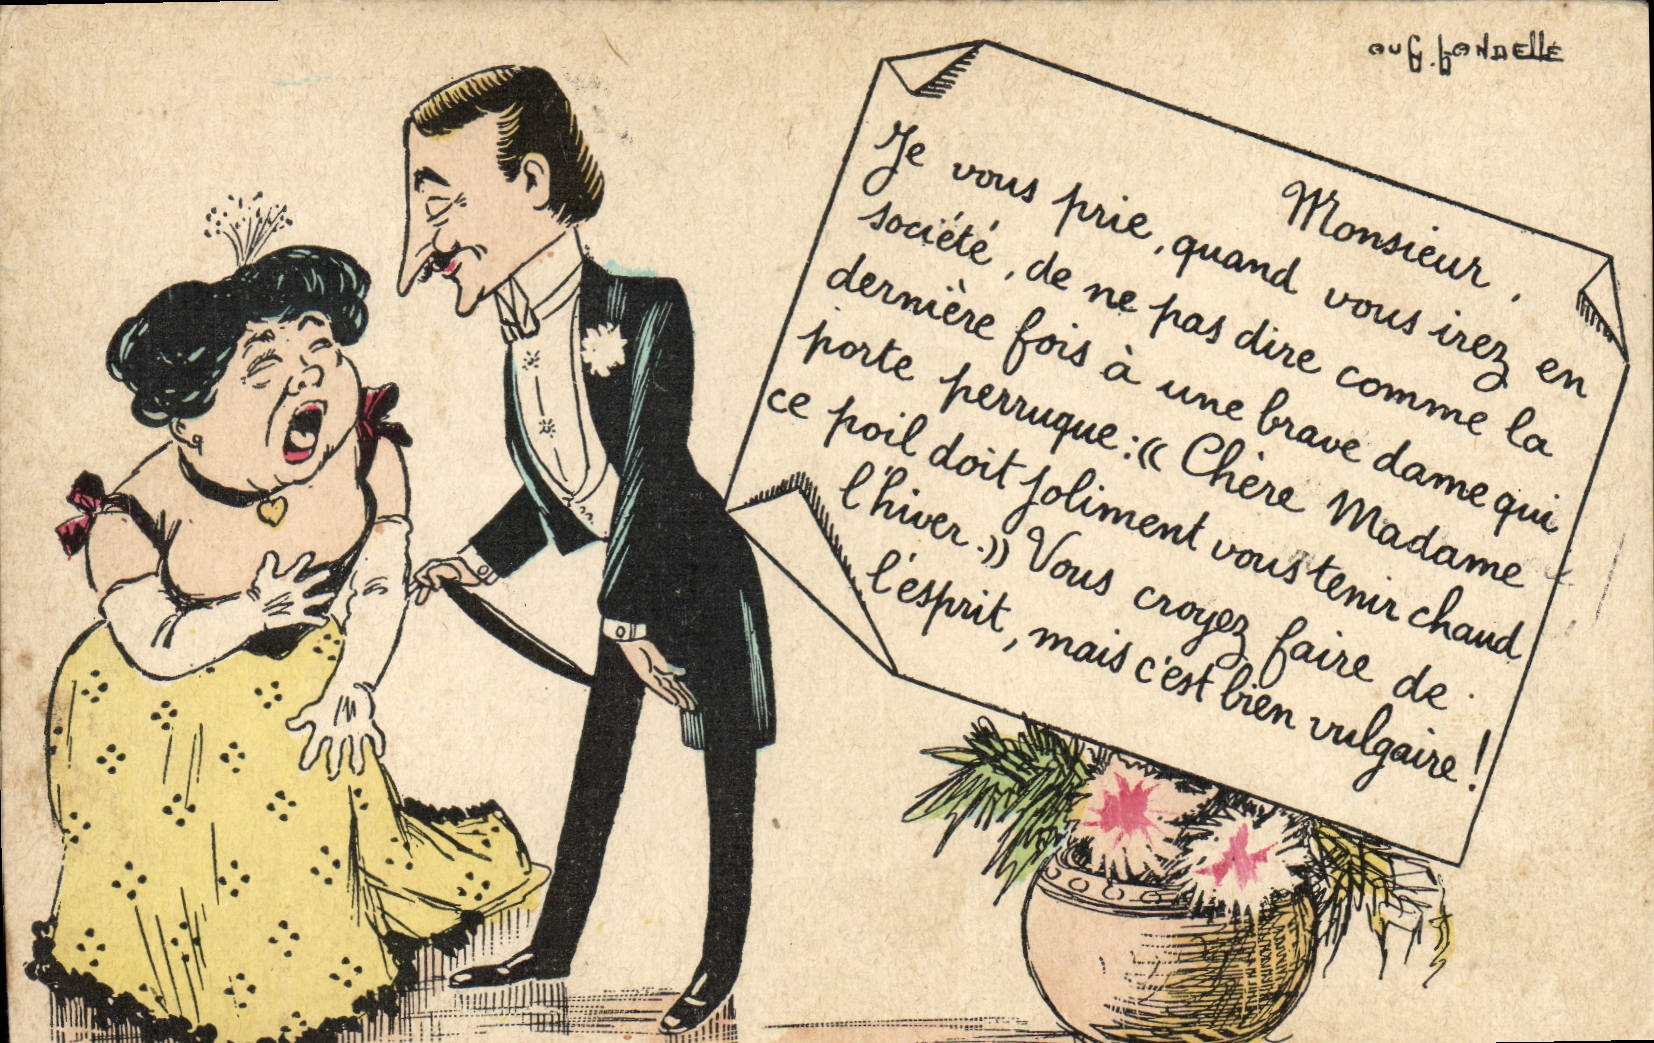 AUG. GANDELLE
Monsieur,
Je vous prie, quand vous irez en
société, de ne pas dire comme la
dernière fois à une brave dame qui
porte perruque : « Chère Madame
ce poil doit joliment vous tenir chaud
l'hiver. » Vous croyez faire de
l'esprit, mais c'est bien vulgaire !